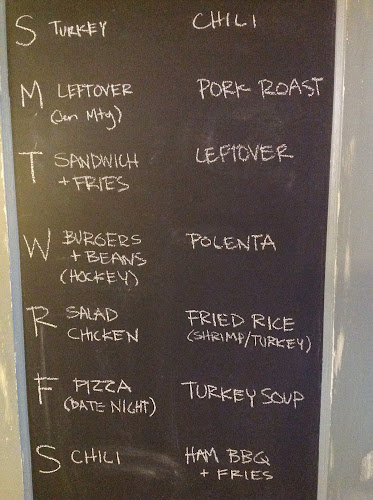 S TURKEY CHILI
M LEFTOVER PORK ROAST
(Jen Mtg)
T SANDWICH LEFTOVER
+ FRIES
W BURGERS POLENTA
+ BEANS
(HOCKEY)
R SALAD FRIED RICE
CHICKEN (SHRIMP/TURKEY)
F PIZZA TURKEY SOUP
(DATE NIGHT)
S CHILI HAM BBQ
+ FRIES